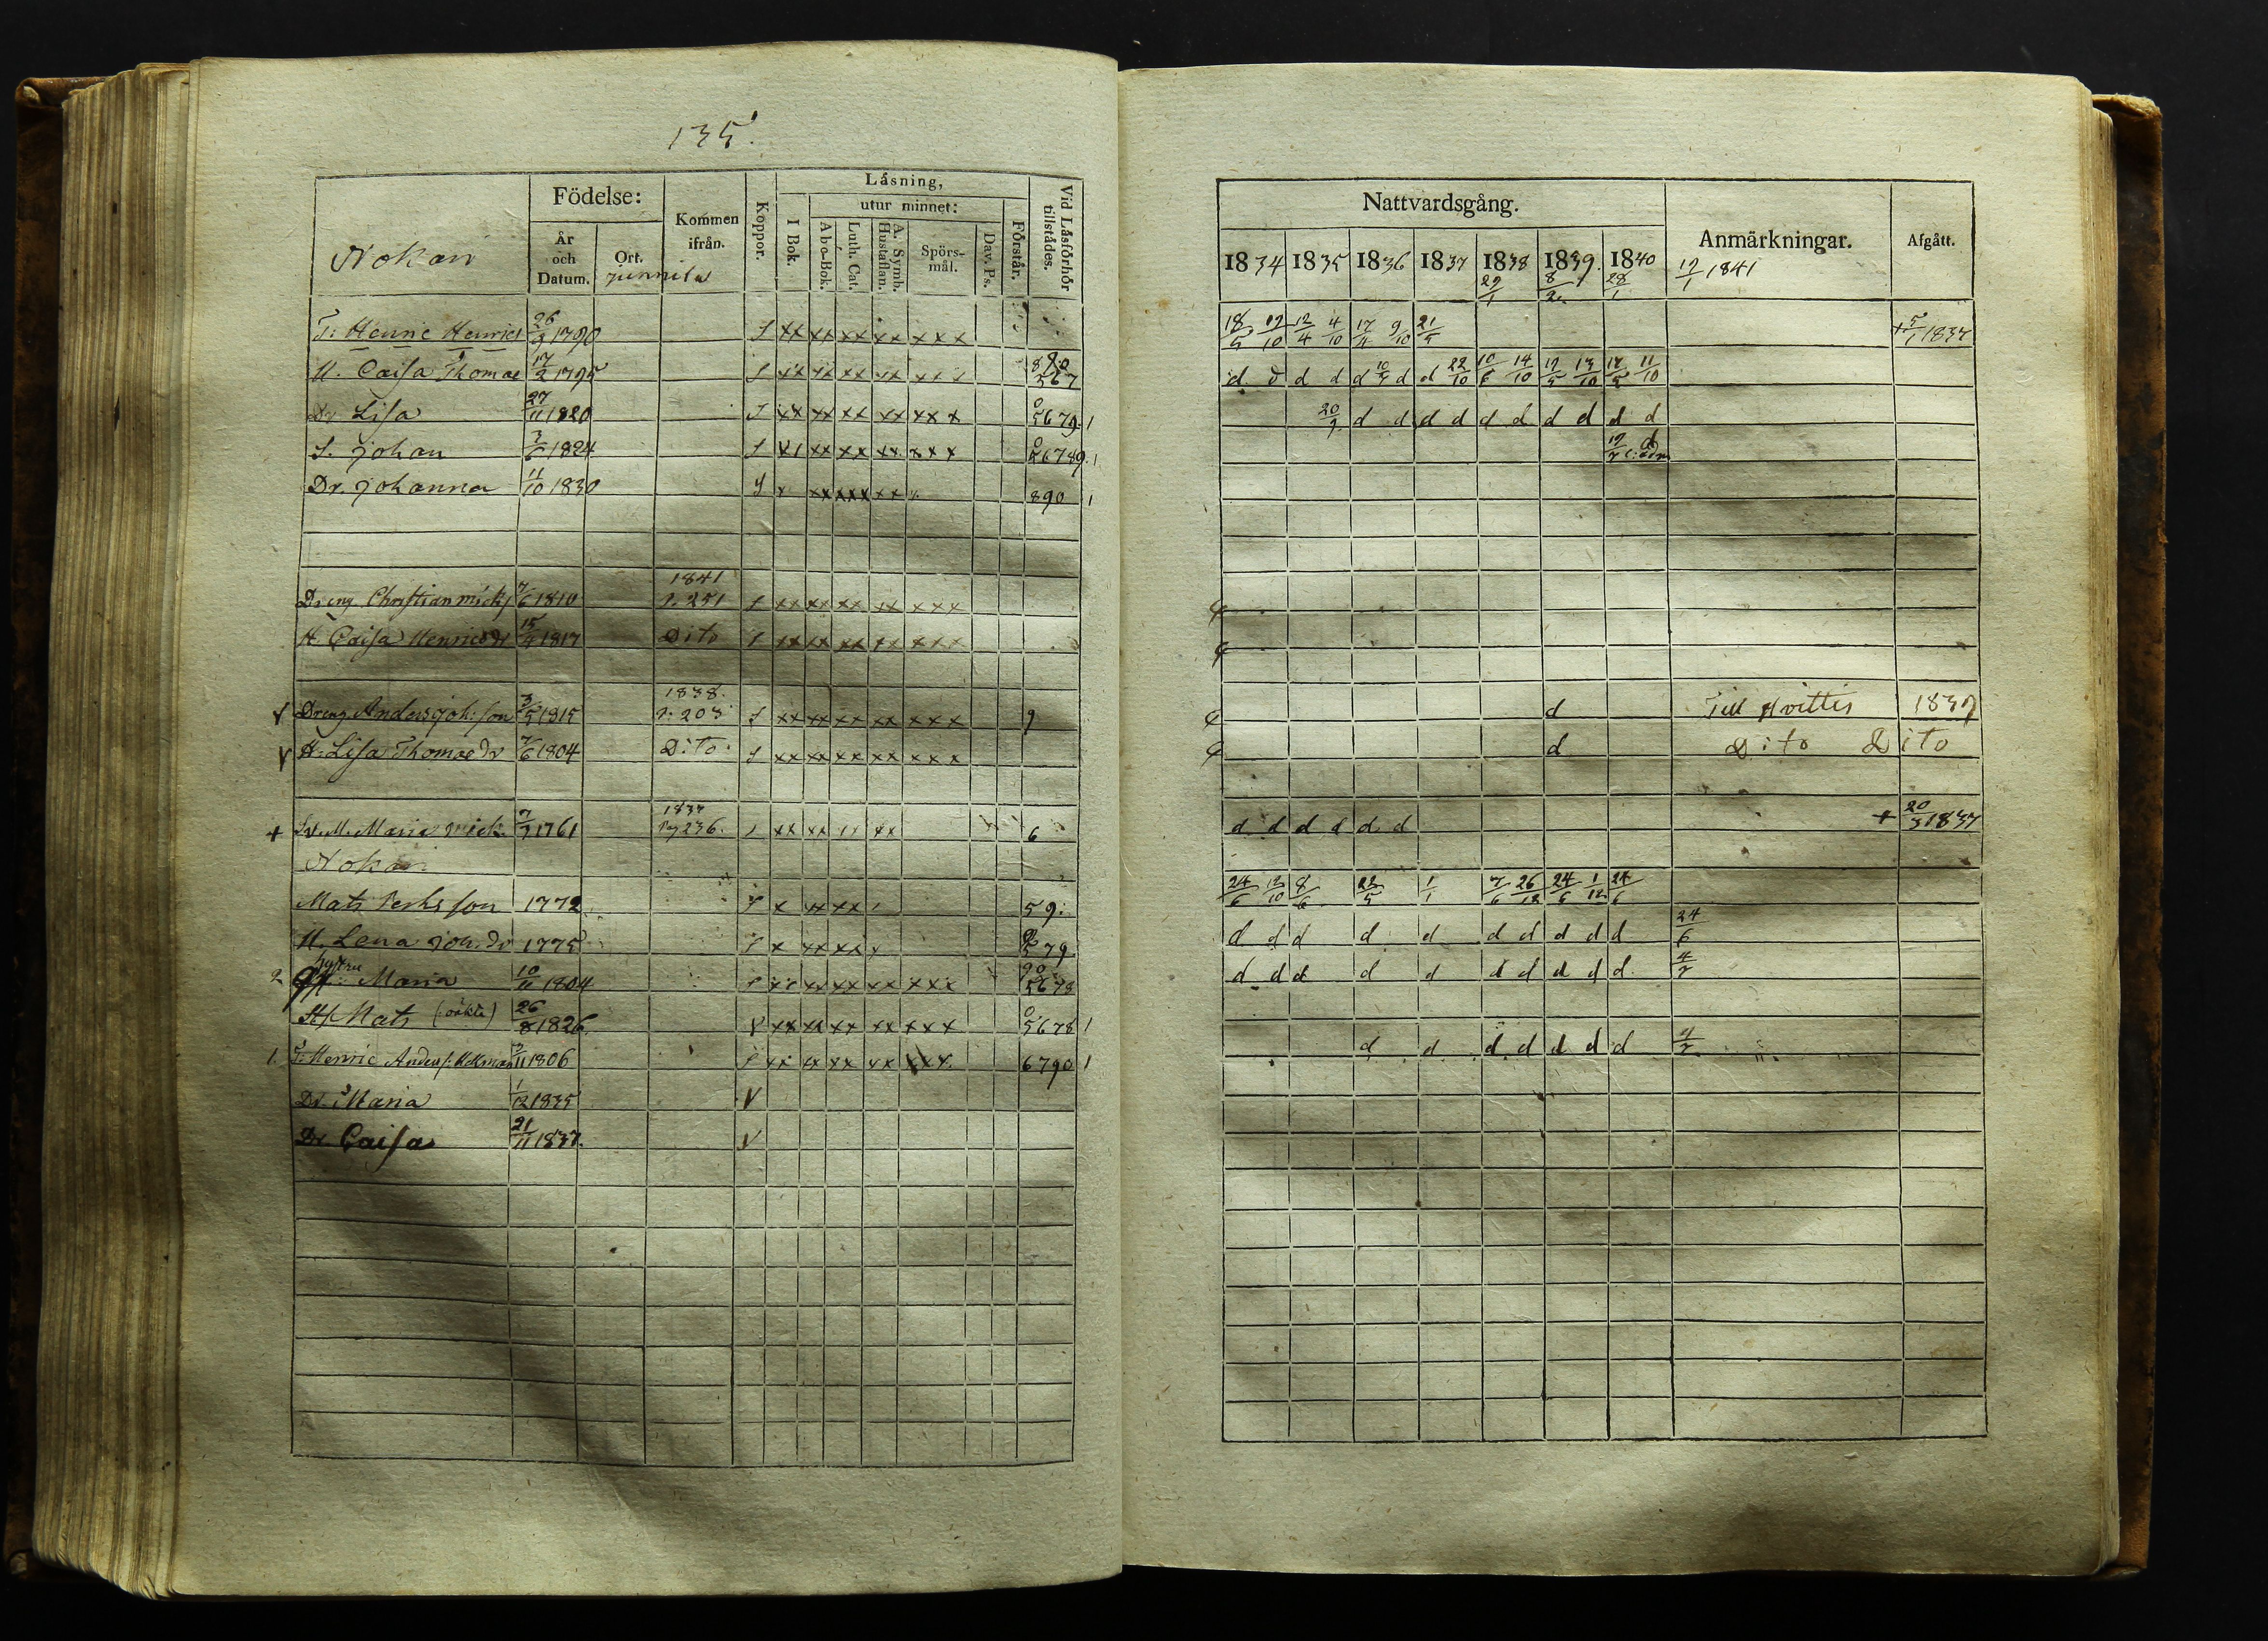 135.
Nokan
Födelse:
År och Datum.
Ort.
Kommen ifrån.
Junnila
Koppor.
Läsning,
I Bok.
utur minnet:
Abo-Bok.
Luth. Cat.
A. Symb. Hustaflan.
Spörs-mål.
Dav. Ps.
Förstår.
Vid Läsförhör tillstädes.
T: Henric Henrics 26/3 1790 S xx xx xx xx xxx
H. Caisa Thomae 17/2 1795 S xx xx xx xx xxx 890 567
Dr Lisa 27/11 1820 S xx xx xx xx xxx 0 5679. 1
S. Johan 3/6 1824 S x1 xx xx xx xxx 0 56789. 1
Dr. Johanna 11/10 1830 S x xx xxx xx x 890 1
Dreng Christian Micks 7/6 1810 1841 p. 251 S xx xx xx xx xxx
H. Caisa Henricsdr 15/4 1817 Dito S xx xx xx xx xxx
Dreng Anders Joh:son 3/5 1815 1838. p: 203 S xx xx xx xx xxx 9
H: Lisa Thomaedr 7/6 1804 Dito. S xx xx xx xx xxx
+ Sv.M. Maria Mick. 7/7 1761 1837 Pag 236. xx xx xx 6
Nokan
Mats Perhsson 1772 S x xx xx 59.
H. Lena Joh.dr 1775 S x xx xx x 0 579
2 hustru Maria 10/11 1804 S xx xx xx xx xxx 90 5678
Mats (: oäkta) 26/8 1826. V xx xx xx xx xxx 0 5678 1
1. Henric Anders: 3/11 1806 S xx xx xx xx xxx. 6790 1
Dr. Maria 1/12 1835 V
Dr Caisa 21/11 1837. V
Nattvardsgång.
Anmärkningar.
Afgått.
1834 1835 1836 1837 1838 1839. 1840
29/1 8/2 28/1 19/1 1841
18/5 19/10 12/4 4/10 17/4 9/10 21/5 + 5/7 1837
d d d d d 10/7 d d 22/10 10/6 14/10 19/5 13/10 17/5 11/10
20/9 d d d d d d d d d d
19/7 d
d Till Hvittis 1839
d Dito Dito
d d d d d d + 20/3 1837
24/6 12/10 8/6 23/5 1/1 7/6 26/12 24/6 1/12 24/6
d d d d d d d d d d 24/6
d d d d d d d d d d. 4/7
d d d d d d d 4/7